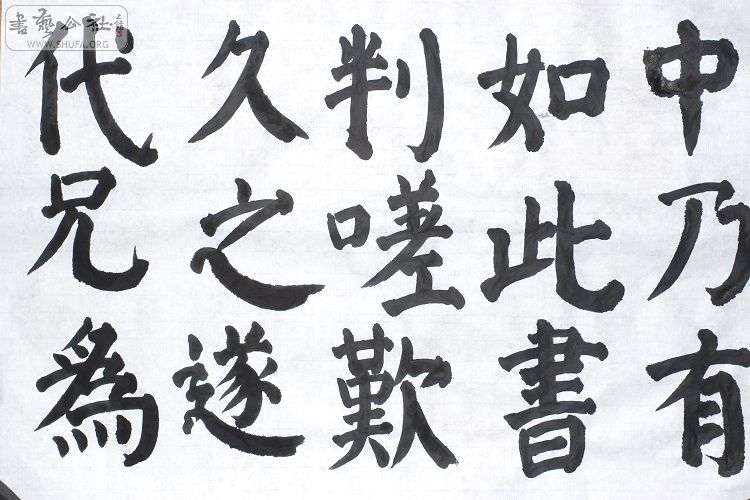 中乃有
如此書
判嗟歎
久之遂
代兄為
書藝公社
WWW.SHUFA.ORG